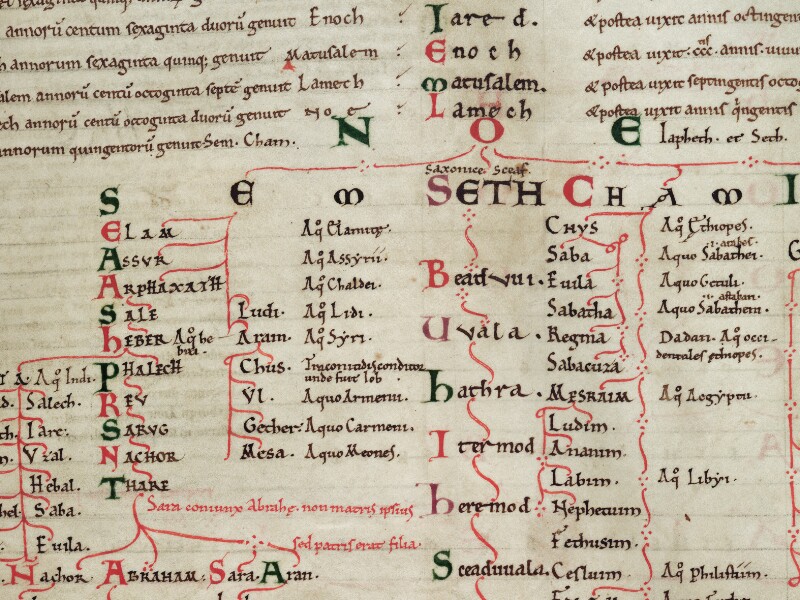 annorū centum sexaginta duorū genuit Enoch : Iared. & postea uixit annis octingen
annorum sexaginta quinq; genuit Matusalem : Enoch & postea uixit ccc. annis.
alem annorū centū octoginta septē genuit Lamech : Matusalem. & postea uixit septingentis octo
ech annorū centū octoginta duorū genuit Noe : Lamech & postea uixit annis qingentis
annorum quingentorū genuit Sem. Cham. NOE Iapheth. et Seth.
Saxonice. Sceaf.
SEM SETH CHAM I
Elam Aq Elamitę. Chus Aq Ethiopes.
Assur Aq Assyrii. Saba Aquo Sabathei. .i. arabes.
Arphaxath Aq Chaldei. Beadwui. Euila Aquo Getuli.
Sale Ludi. Aq Lidi. Sabatha Aquo Sabatheni.
Heber Aq he brei. Aram. Aq Syri. Uuala. Regma Dadan. Aq occi-
dentales ethiopes.
Phalech Chus. Traconitidis conditor Sabacuza
unde fuit Iob
Aq Indi.
Salech. Reu Vl. Aquo Armenii. Hathra. Mesraim Aq Aegyptii.
Iare. Sarug Gether. Aquo Carmeni. Ludim.
Vzal. Nachor Mesa. Aquo Meones. Itermod Anamim.
Hebal. Thare Labim. Aq Libyi.
Saba. Sara coniunx Abrahę. non matris ipsius Heremod Nephtuim
Euila. sed patris erat filia. Fethusim.
Nachor Abraham. Sara. Aran. Sceaduuala. Cesluim. Aq Philistiim.